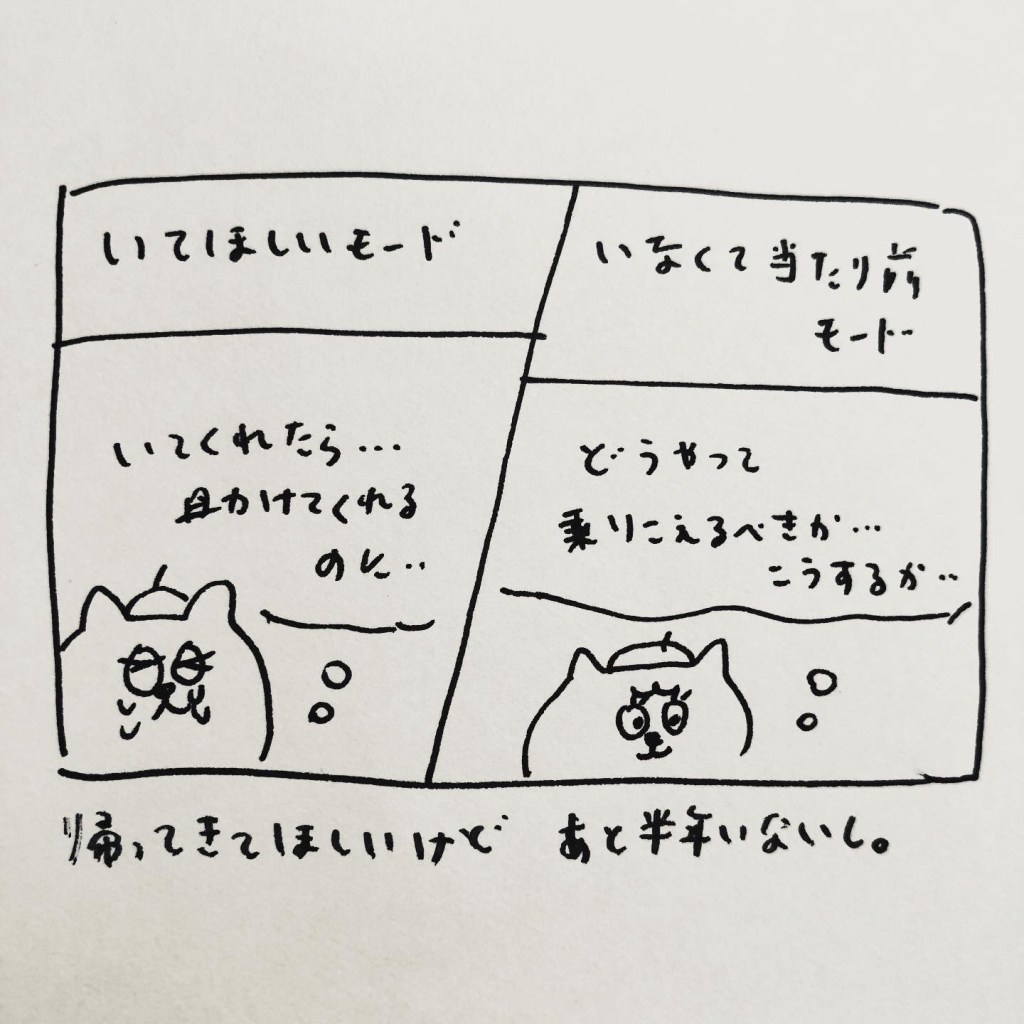 いてほしいモード
いてくれたら…
助かけてくれる
のに‥
いなくて当たり前
モード
どうやって
乗りこえるべきか…
こうするか‥
帰ってきてほしいけど あと半年いないし。